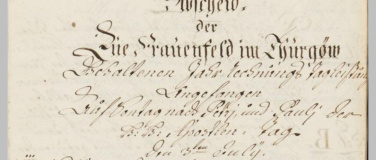 Abscheid.
der
Zue Frauenfeld im Thürgöw
Gehaltenen Jahr Rechnungs Tagleistung
Angefangen
Auf Sontag nach Petrj und Paulj der
Apostlen Tag
den 3ten July.